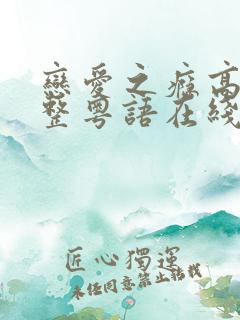 戀愛之癮高
整粵語在綫
匠心獨運
未经同意禁止转载